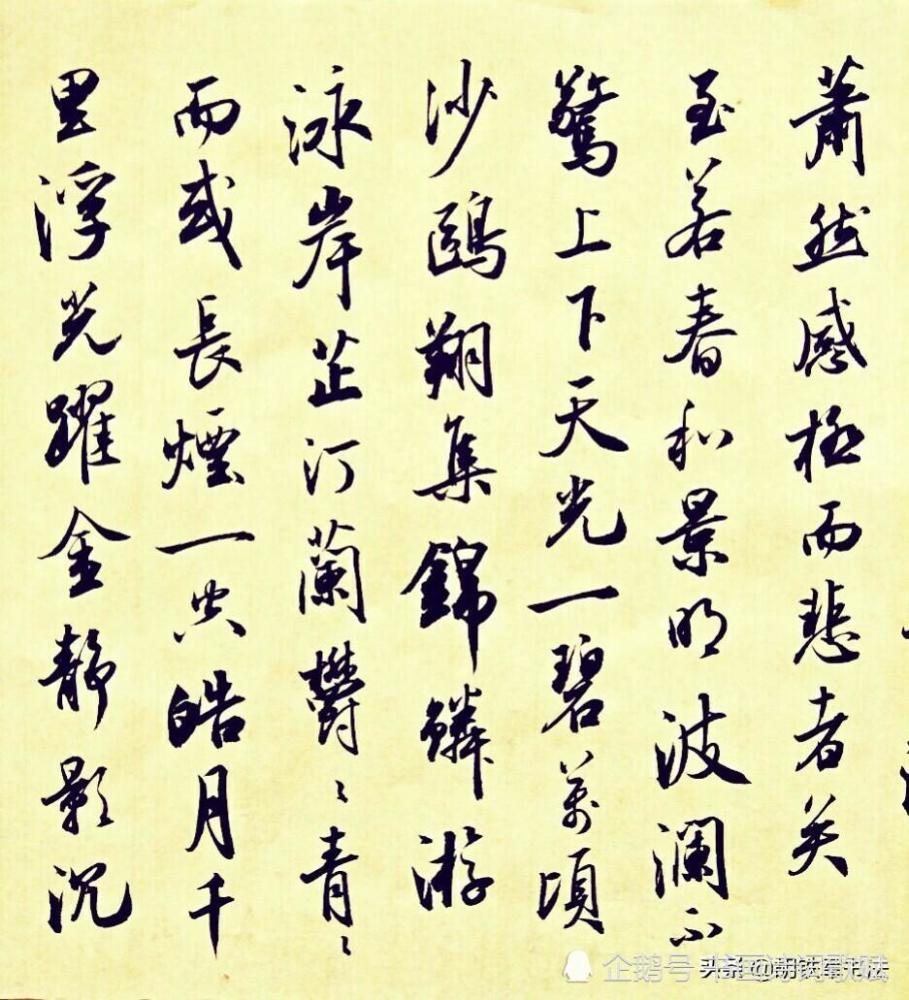 蕭然感極而悲者矣
至若春和景明波瀾不
驚上下天光一碧萬頃
沙鷗翔集錦鱗游
泳岸芷汀蘭鬱〻青〻
而或長煙一空皓月千
里浮光躍金靜影沉
企鹅号
头条